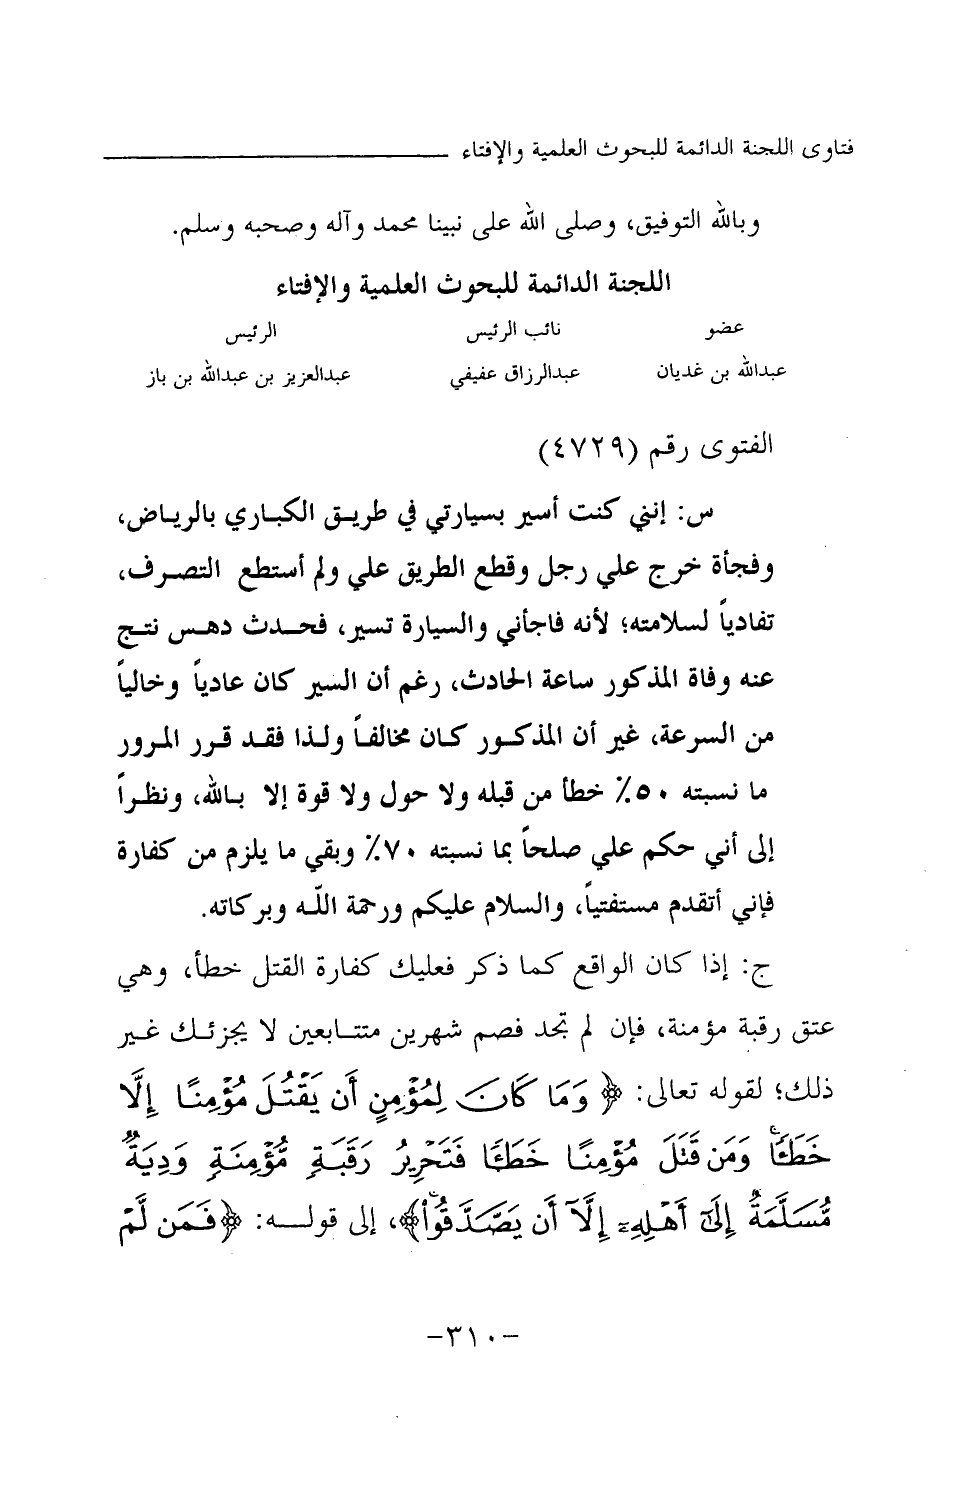 فتاوى اللجنة الدائمة للبحوث العلمية والإفتاء
وبالله التوفيق، وصلى الله على نبينا محمد وآله وصحبه وسلم.
اللجنة الدائمة للبحوث العلمية والإفتاء
عضو نائب الرئيس الرئيس
عبدالله بن غديان عبدالرزاق عفيفي عبدالعزيز بن عبدالله بن باز
الفتوى رقم (٤٧٢٩)
س: إنني كنت أسير بسيارتي في طريق الكباري بالرياض،
وفجأة خرج علي رجل وقطع الطريق علي ولم أستطع التصرف،
تفادياً لسلامته؛ لأنه فاجأني والسيارة تسير، فحدث دهس نتج
عنه وفاة المذكور ساعة الحادث، رغم أن السير كان عادياً وخالياً
من السرعة، غير أن المذكور كان مخالفاً ولذا فقد قرر المرور
ما نسبته ٥٠٪ خطأ من قبله ولا حول ولا قوة إلا بالله، ونظراً
إلى أني حكم علي صلحاً بما نسبته ٧٠٪ وبقي ما يلزم من كفارة
فإني أتقدم مستفتياً، والسلام عليكم ورحمة الله وبركاته.
ج: إذا كان الواقع كما ذكر فعليك كفارة القتل خطأ، وهي
عتق رقبة مؤمنة، فإن لم تجد فصم شهرين متتابعين لا يجزئك غير
ذلك؛ لقوله تعالى: ﴿وَمَا كَانَ لِمُؤْمِنٍ أَن يَقْتُلَ مُؤْمِنًا إِلَّا
خَطَـًٔا ۚ وَمَن قَتَلَ مُؤْمِنًا خَطَـًٔا فَتَحْرِيرُ رَقَبَةٍ مُّؤْمِنَةٍ وَدِيَةٌ
مُّسَلَّمَةٌ إِلَىٰٓ أَهْلِهِۦٓ إِلَّآ أَن يَصَّدَّقُوا۟ ۚ﴾، إلى قوله: ﴿فَمَن لَّمْ
-٣١٠-